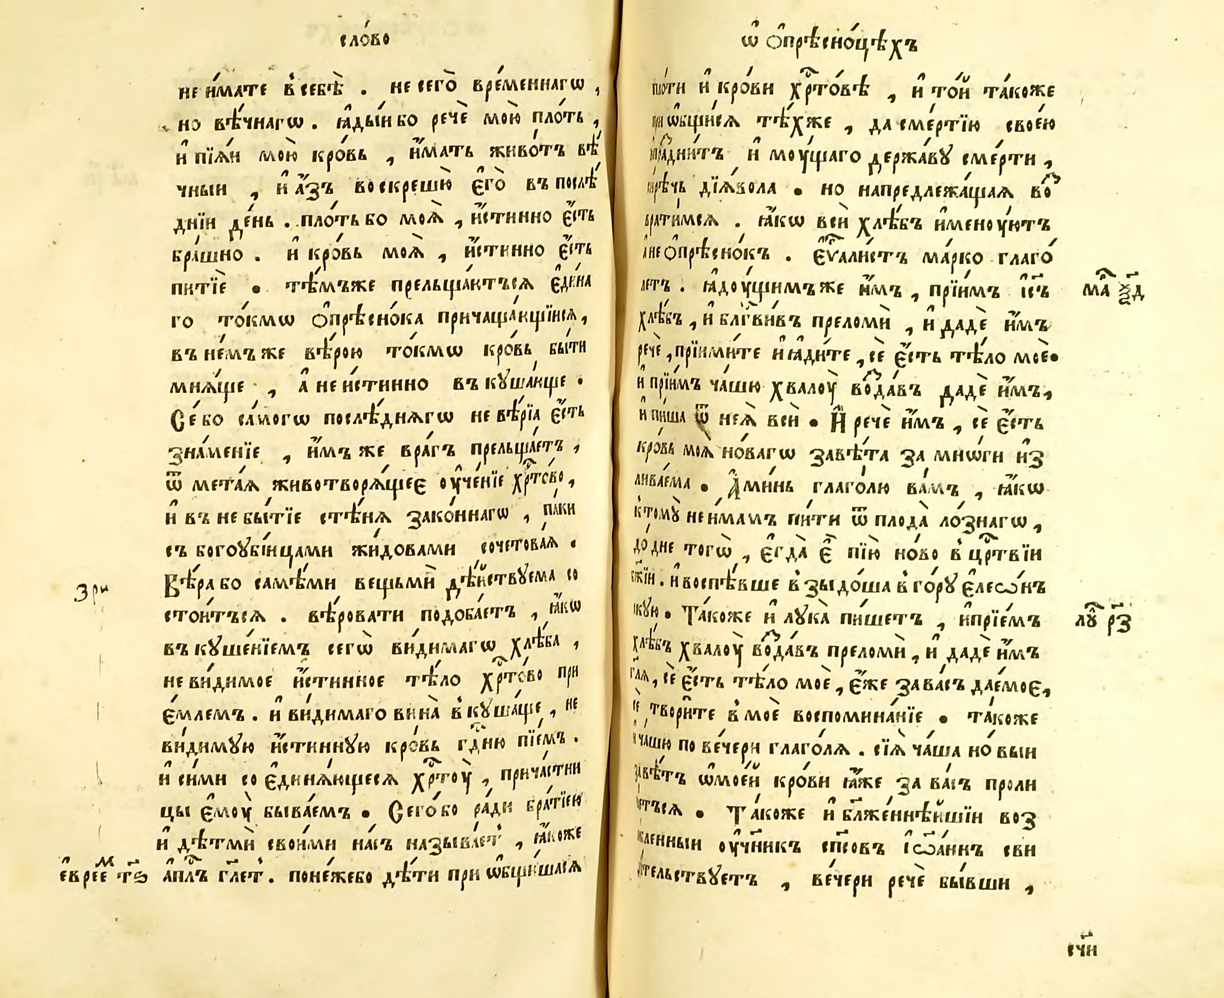 сло́во
не и҆́мате в себѣ̀ . не сего̀ вре́меннагѡ ,
но вѣ́чнагѡ . ꙗ҆ды́и бо речѐ мою̀ пло́ть ,
и҆ пїѧ́и мою̀ кро́вь , и҆́мать живо́тъ вѣ́
чныи , и҆ а҆́зъ воскрешю̀ є҆го̀ въ послѣ́
днїи де́нь . пло́ть бо моѧ̀ , и҆́стинно є҆́сть
бра́шно . и҆ кро́вь моѧ̀ , и҆́стинно є҆́сть
питїе • тѣ́мъже прельща́ютъсѧ є҆ди́на
го то́кмѡ ѻ҆прѣ́снока причаща́ющїисѧ ,
въ не́мъ же вѣ́рою то́кмѡ кро́вь бы́ти
мнѧ́ще , а҆ не и҆́стинно въкꙋша́юще .
Се́ бо са́могѡ послѣ́днѧгѡ невѣ́рїа є҆́сть
зна́менїе , и҆́мъ же вра́гъ прельща́етъ ,
ѿ мета́ѧ животворѧ́щеє оу҆че́нїе хрⷭ҇то́во ,
и҆ въ небы́тїе стѣ́нѧ зако́ннагѡ , па́ки
съ богоꙋбі́йцами жи́довами сочетова́ѧ .
Вѣ́ра бо самѣ́ми вещьмѝ дѣ́йствꙋема со
стои́тъсѧ . вѣ́ровати подоба́етъ , ꙗ҆́кѡ
въкꙋше́нїемъ сегѡ̀ ви́димагѡ хлѣ́ба ,
неви́димое и҆́стинное тѣ́ло хрⷭ҇то́во при
є҆́млемъ . и҆ ви́димаго вина̀ вкꙋша́ще , не
ви́димꙋю и҆́стиннꙋю кро́вь гдⷭ҇ню пїе́мъ .
и҆ си́ми соє҆динѧ́ющесѧ хрⷭ҇тоу҆̀ , прича́стни
цы є҆моу҆̀ быва́емъ • Сего́ бо ра́ди бра́тїею
и҆ дѣтмѝ свои́ми на́съ называ́етъ , ꙗ҆́коже
а҆пⷭ҇лъ гл҃етъ . поне́жебо дѣ́ти приѡбщи́шасѧ
зри
є҆вре́е
ѡ҆ ѻ҆прѣсно́цѣхъ
пло́ти и҆ кро́ви хрⷭ҇то́вѣ , и҆ то́й та́коже
приѡбщи́сѧ тѣ́хже , да сме́ртїю свое́ю
оу҆праздни́тъ и҆моу́щаго держа́вꙋ сме́рти ,
си́рѣчь дїѧ́вола • но напредлежа́щаѧ воз
врати́мсѧ . ꙗ҆́кѡ всѝ хлѣ́бъ и҆менꙋ́ютъ
а҆ не ѻ҆прѣ́снокъ . є҆ѵⷢ҇али́стъ ма́рко глаго́
летъ . ꙗ҆доу́щимъже и҆̀мъ , прїи́мъ і҆с҃ъ
хлѣ́бъ , и҆ блгⷭ҇ви́въ преломѝ , и҆ дадѐ и҆̀мъ
речѐ , прїими́те и҆ ꙗ҆ди́те , сѐ є҆́сть тѣ́ло моѐ •
и҆ прїи́мъ ча́шю хвалоу҆̀ возда́въ дадѐ и҆̀мъ ,
и҆ пи́ша ѿ неѧ̀ всѝ • И҆ речѐ и҆̀мъ , сѐ є҆́сть
кро́вь моѧ̀ но́вагѡ завѣ́та за мнѡ́ги и҆з
лива́ема • А҆ми́нь глаго́лю ва́мъ , ꙗ҆́кѡ
ктомꙋ̀ не и҆́мамъ пи́ти ѿ плода̀ ло́знагѡ ,
до дне тогѡ̀ , є҆гда̀ є҆̀ пїю̀ но́во в црⷭ҇твїи
бж҃їи . и҆ воспѣ́вше взыдо́ша в го́рꙋ є҆леѡ́нъ
скꙋю • Та́коже и҆ лꙋка̀ пи́шетъ , и҆ прїе́мъ
хлѣ́бъ хвалоу҆̀ возда́въ преломѝ , и҆ дадѐ и҆̀мъ
гл҃ѧ , сѐ є҆́сть тѣ́ло моѐ , є҆́же за ва́съ дае́моє ,
сѐ твори́те в моѐ воспомина́нїе • та́коже
и҆ ча́шю по ве́чери глаго́лѧ . сїѧ̀ ча́ша но́выи
завѣ́тъ ѡ҆ мое́й кро́ви ꙗ҆́же за ва́съ проли
ѐтъсѧ • Та́коже и҆ бл҃же́ннѣйшїи воз
лю́бленныи оу҆чн҃къ сп҃совъ і҆ѡа́ннъ сви
дѣ́тельствꙋетъ , ве́чери речѐ бы́вши ,
ма́р ѯ҃д
лꙋ р҃з
сч҃и